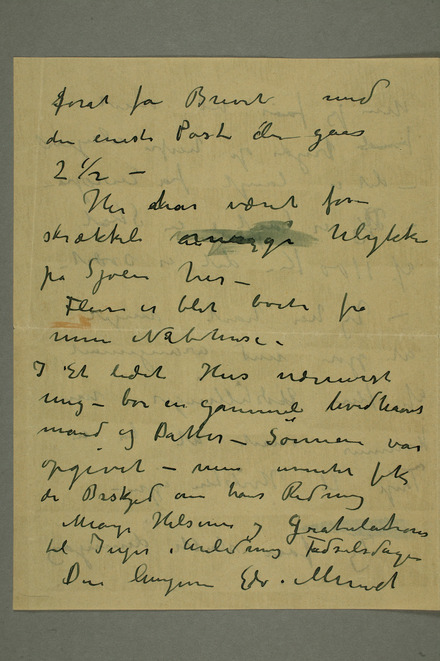 forat faa Brevet med
den eneste Post der gaar
2 1/2 –
Her har været for
skrækkelige Ulykker
på Sjøen her –
Flere er blot borte fra
mine Nabohuse –
I Et lidet Hus nærmest
mig – bor en gammel hvidhaaret
mand og Datter – Sønnen var
opgivet – men
de Beskjed om hans Redning
Mange Hilsener og Gratulationer
til Inger i Anledning Fødselsdagen
Din hengivne Edv. Munch